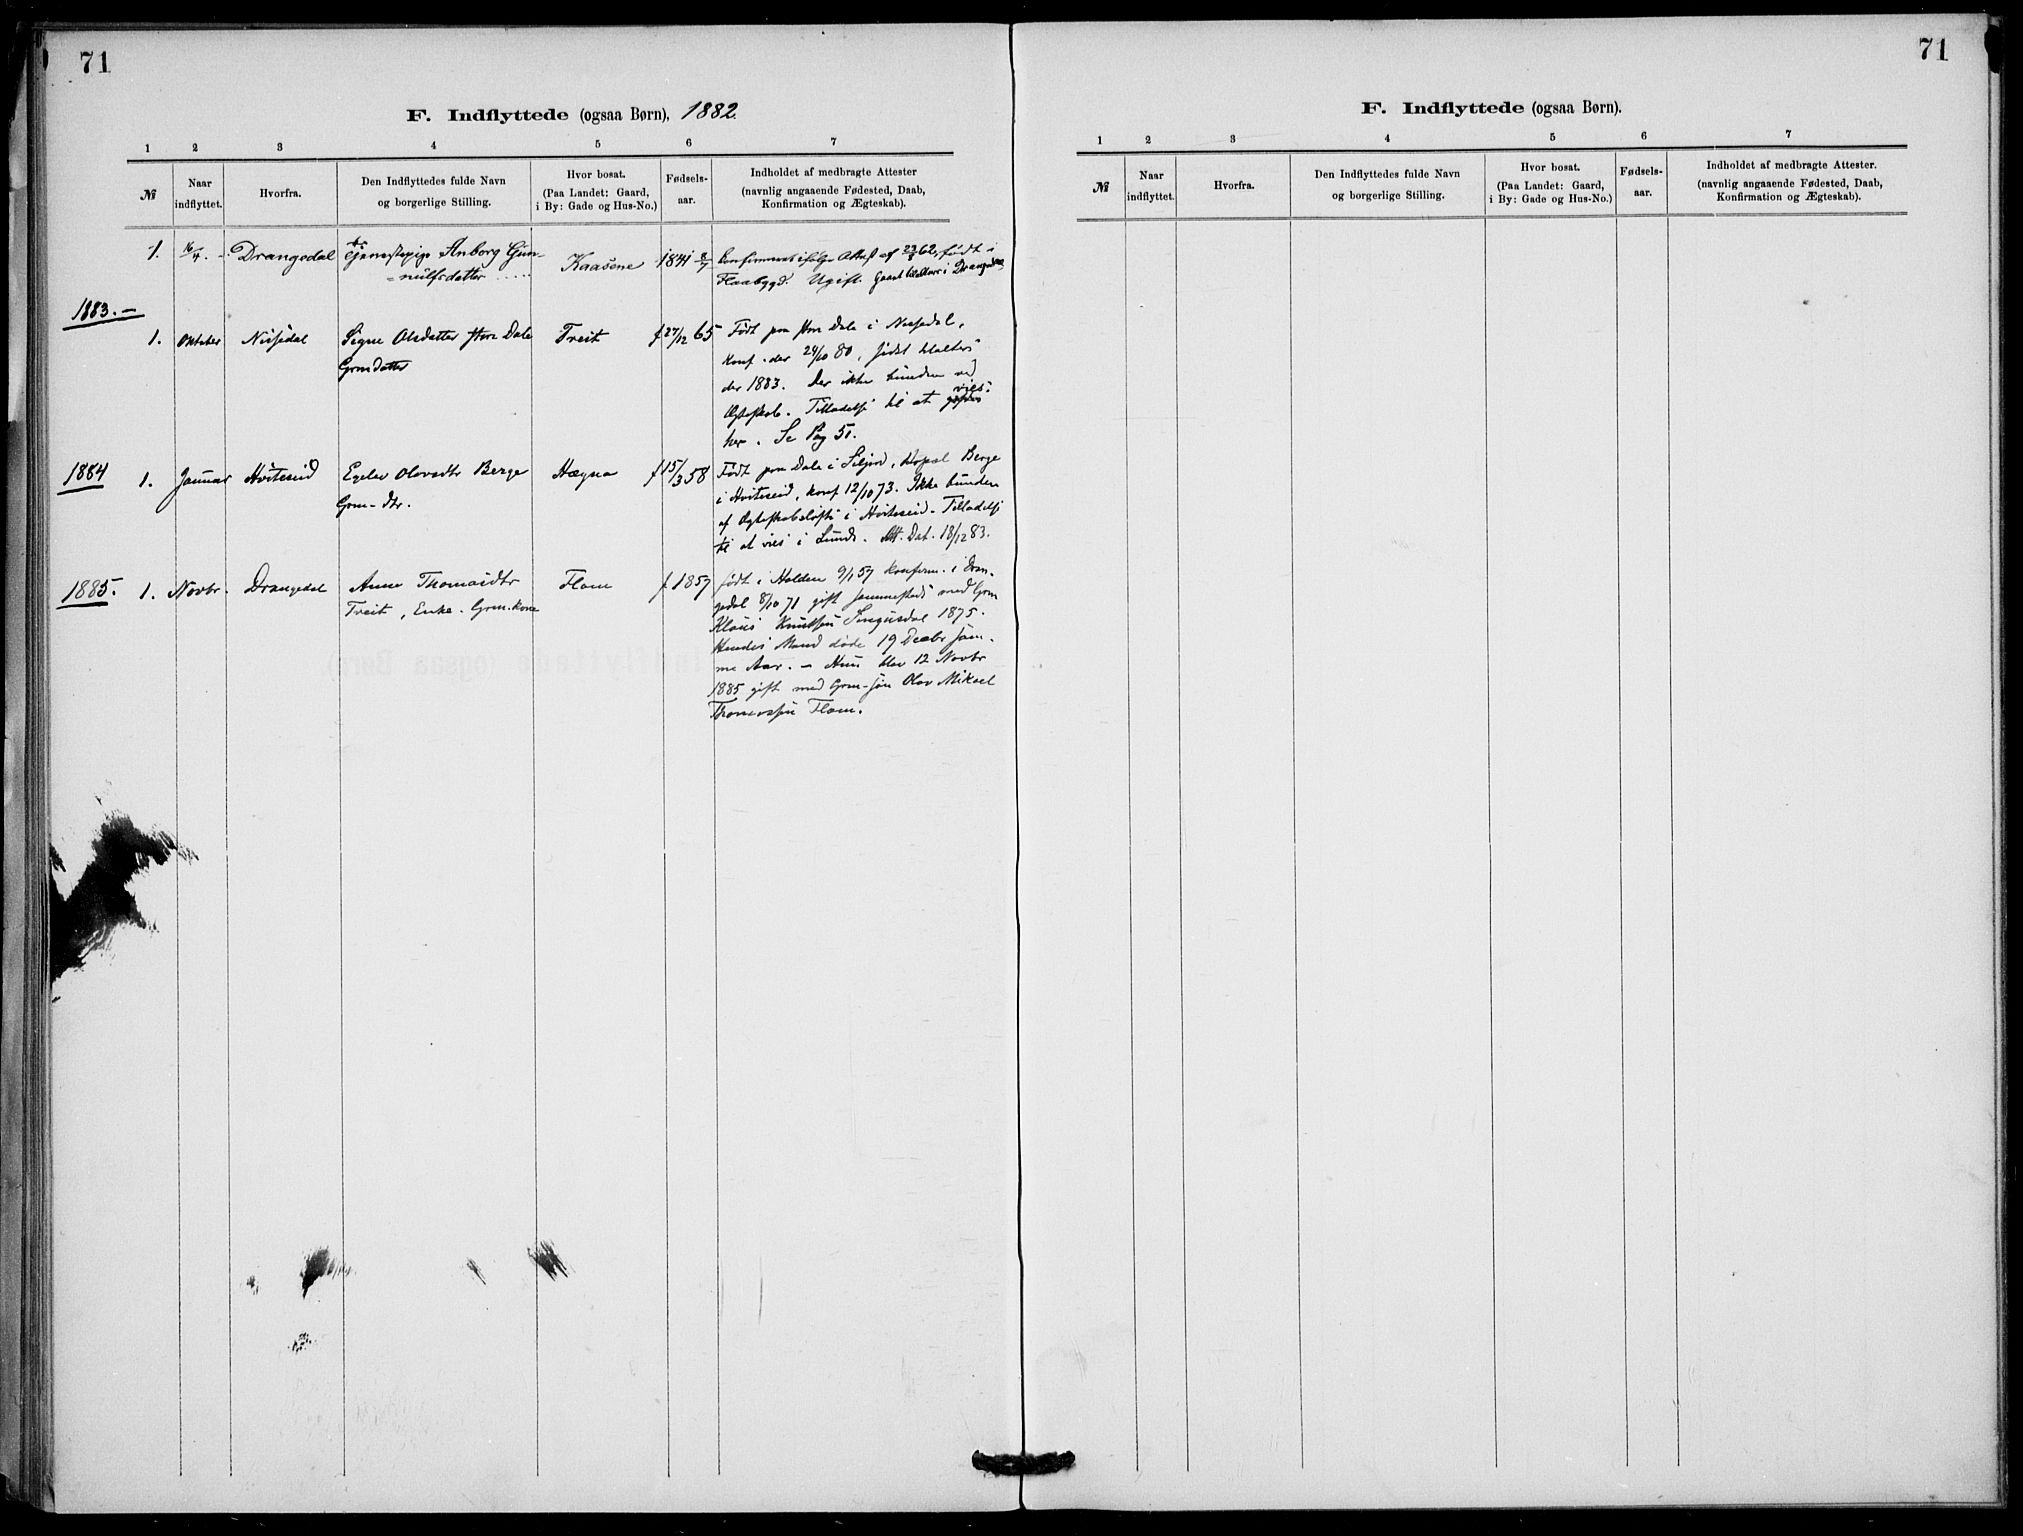 71
F. Indflyttede (ogsaa Børn), 1882.
1 2 3 4 5 6 7
№
Naar indflyttet.
Hvorfra.
Den Indflyttedes fulde Navn og borgerlige Stilling.
Hvor bosat. (Paa Landet: Gaard, i By: Gade og Hus-No.)
Fødsels-aar.
Indholdet af medbragte Attester (navnlig angaaende Fødested, Daab, Konfirmation og Ægteskab).
1. 16/4 Drangedal Tjenestepige Anborg Gun-
nulfsdatter
Kaasene 1841 8/7
født i
Flaabygd. Ugift. i Drangedal
1883.
1. Oktober Nissedal Signe Olsdatter Dale
Grmdatter
Treit f 27/12 65
Født paa Dale i Nissedal,
konf. der 24/10 80,
der 1883. Der ikke bunden ved
Ægteskab. Tilladelse til at vies
her. Se Pag 51.
1884 1. Januar Hviteseid Egelev Olovsdtr Berge
Grm-dtr.
Hægna f 15/3 58
Født paa Dale i Siljord, Berge
i Hviteseid, konf 12/10 73. Ikke bunden
af Ægteskabsløfte i Hviteseid. Tilladelse
til at vies i Lunde. Att. Dat. 18/12 83.
1885. 1. Novbr. Drangedal Anne Thomasdtr
Treit, Enke. Grm.kone
Flom f 1857
født i Holden 9/1 57 konfirm. i Dran-
gedal 8/10 71 gift sammesteds med Grm
Klaus Knutsen 1875.
Hendes Mand døde 19 Decbr sam-
me Aar. – Hun blev 12 Novbr
1885 gift med Grm-søn Olav Mikael
Thomassen Flom.
71
F. Indflyttede (ogsaa Børn).
1 2 3 4 5 6 7
№
Naar indflyttet.
Hvorfra.
Den Indflyttedes fulde Navn og borgerlige Stilling.
Hvor bosat. (Paa Landet: Gaard, i By: Gade og Hus-No.)
Fødsels-aar.
Indholdet af medbragte Attester. (navnlig angaaende Fødested, Daab, Konfirmation og Ægteskab).